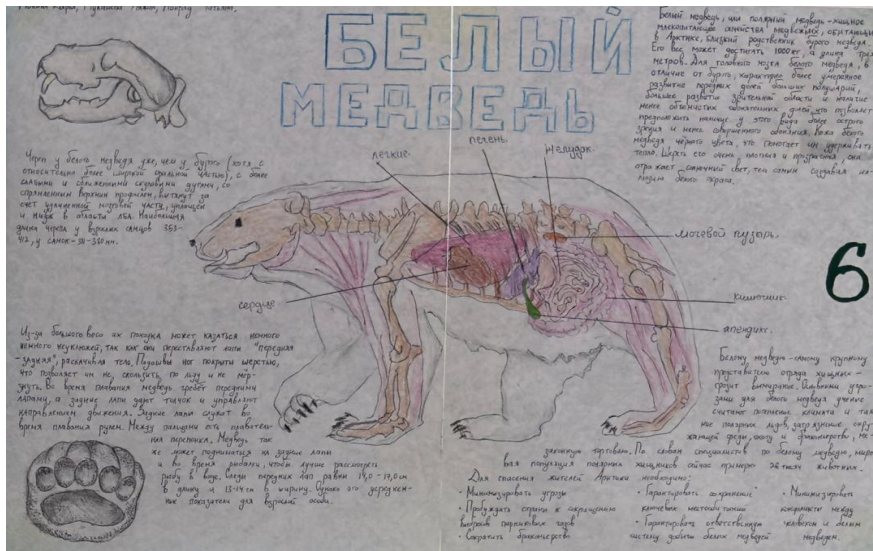 БЕЛЫЙ
МЕДВЕДЬ
Белый медведь, или полярный медведь – хищное
млекопитающее семейства медвежьих, обитающее
в Арктике, близкий родственник бурого медведя.
Его вес может достигать 1000 кг, а длина трёх
метров. Для головного мозга белого медведя, в
отличие от бурого, характерно более умеренное
развитие полушарий,
большее развитие зрительной области и
менее обонятельных долей, что позволяет
предположить наличие у этого вида более острого
зрения и менее совершенного обоняния. Кожа белого
медведя чёрного цвета, что помогает им удерживать
тепло. Шерсть его очень плотная и прозрачная, она
отражает солнечный свет, тем самым создавая
белого окраса.
Череп у белого медведя уже, чем у бурого (хотя с
относительно более широкой частью), с более
слабыми и сближенными скуловыми дугами, со
спрямлённым верхним профилем, вытянут за
счёт удлинённой мозговой части, уплощён
и низок в области лба. Наибольшая
длина черепа у взрослых самцов 363-
412, у самок - 311-350 мм.
легкие
печень
желудок
мочевой пузырь
сердце
кишечник
апендикс
6
Из-за большого веса их походка может казаться немного
немного неуклюжей, так как они переставляют лапы "передняя
-задняя", раскачивая тело. Подошвы ног покрыты шерстью,
что позволяет им не скользить по льду и не мёр-
знуть. Во время плавания медведь гребёт передними
лапами, а задние лапы дают толчок и управляют
направлением движения. Задние лапы служат во
время плавания рулем. Между пальцами есть плаватель-
ная перепонка. Медведь так
же может подниматься на задние лапы
и во время рыбалки, чтобы лучше рассмотреть
рыбу в воде. Следы передних лап равны 14,0 - 17,0 см
в длину и 13-14 см в ширину. Однако это
показатели для взрослой особи.
Белому медведю – самому крупному
представителю отряда хищных –
грозит вымирание. Главными угро-
зами для белого медведя ученые
считают потепление климата и тая-
ние полярных льдов, загрязнение окру-
жающей среды, охоту и браконьерство, не-
законную торговлю. По словам специалистов по белому медведю, миро-
вая популяция полярных хищников сейчас примерно 26 тысяч животных.
Для спасения жителей Арктики необходимо:
• Минимизировать угрозы
• Побуждать страны к сокращению
выбросов парниковых газов
• Сократить браконьерство
• Гарантировать сохранение
ключевых местообитаний
• Гарантировать ответственную
систему добычи белых медведей
• Минимизировать
конфликты между
человеком и белым
медведем.